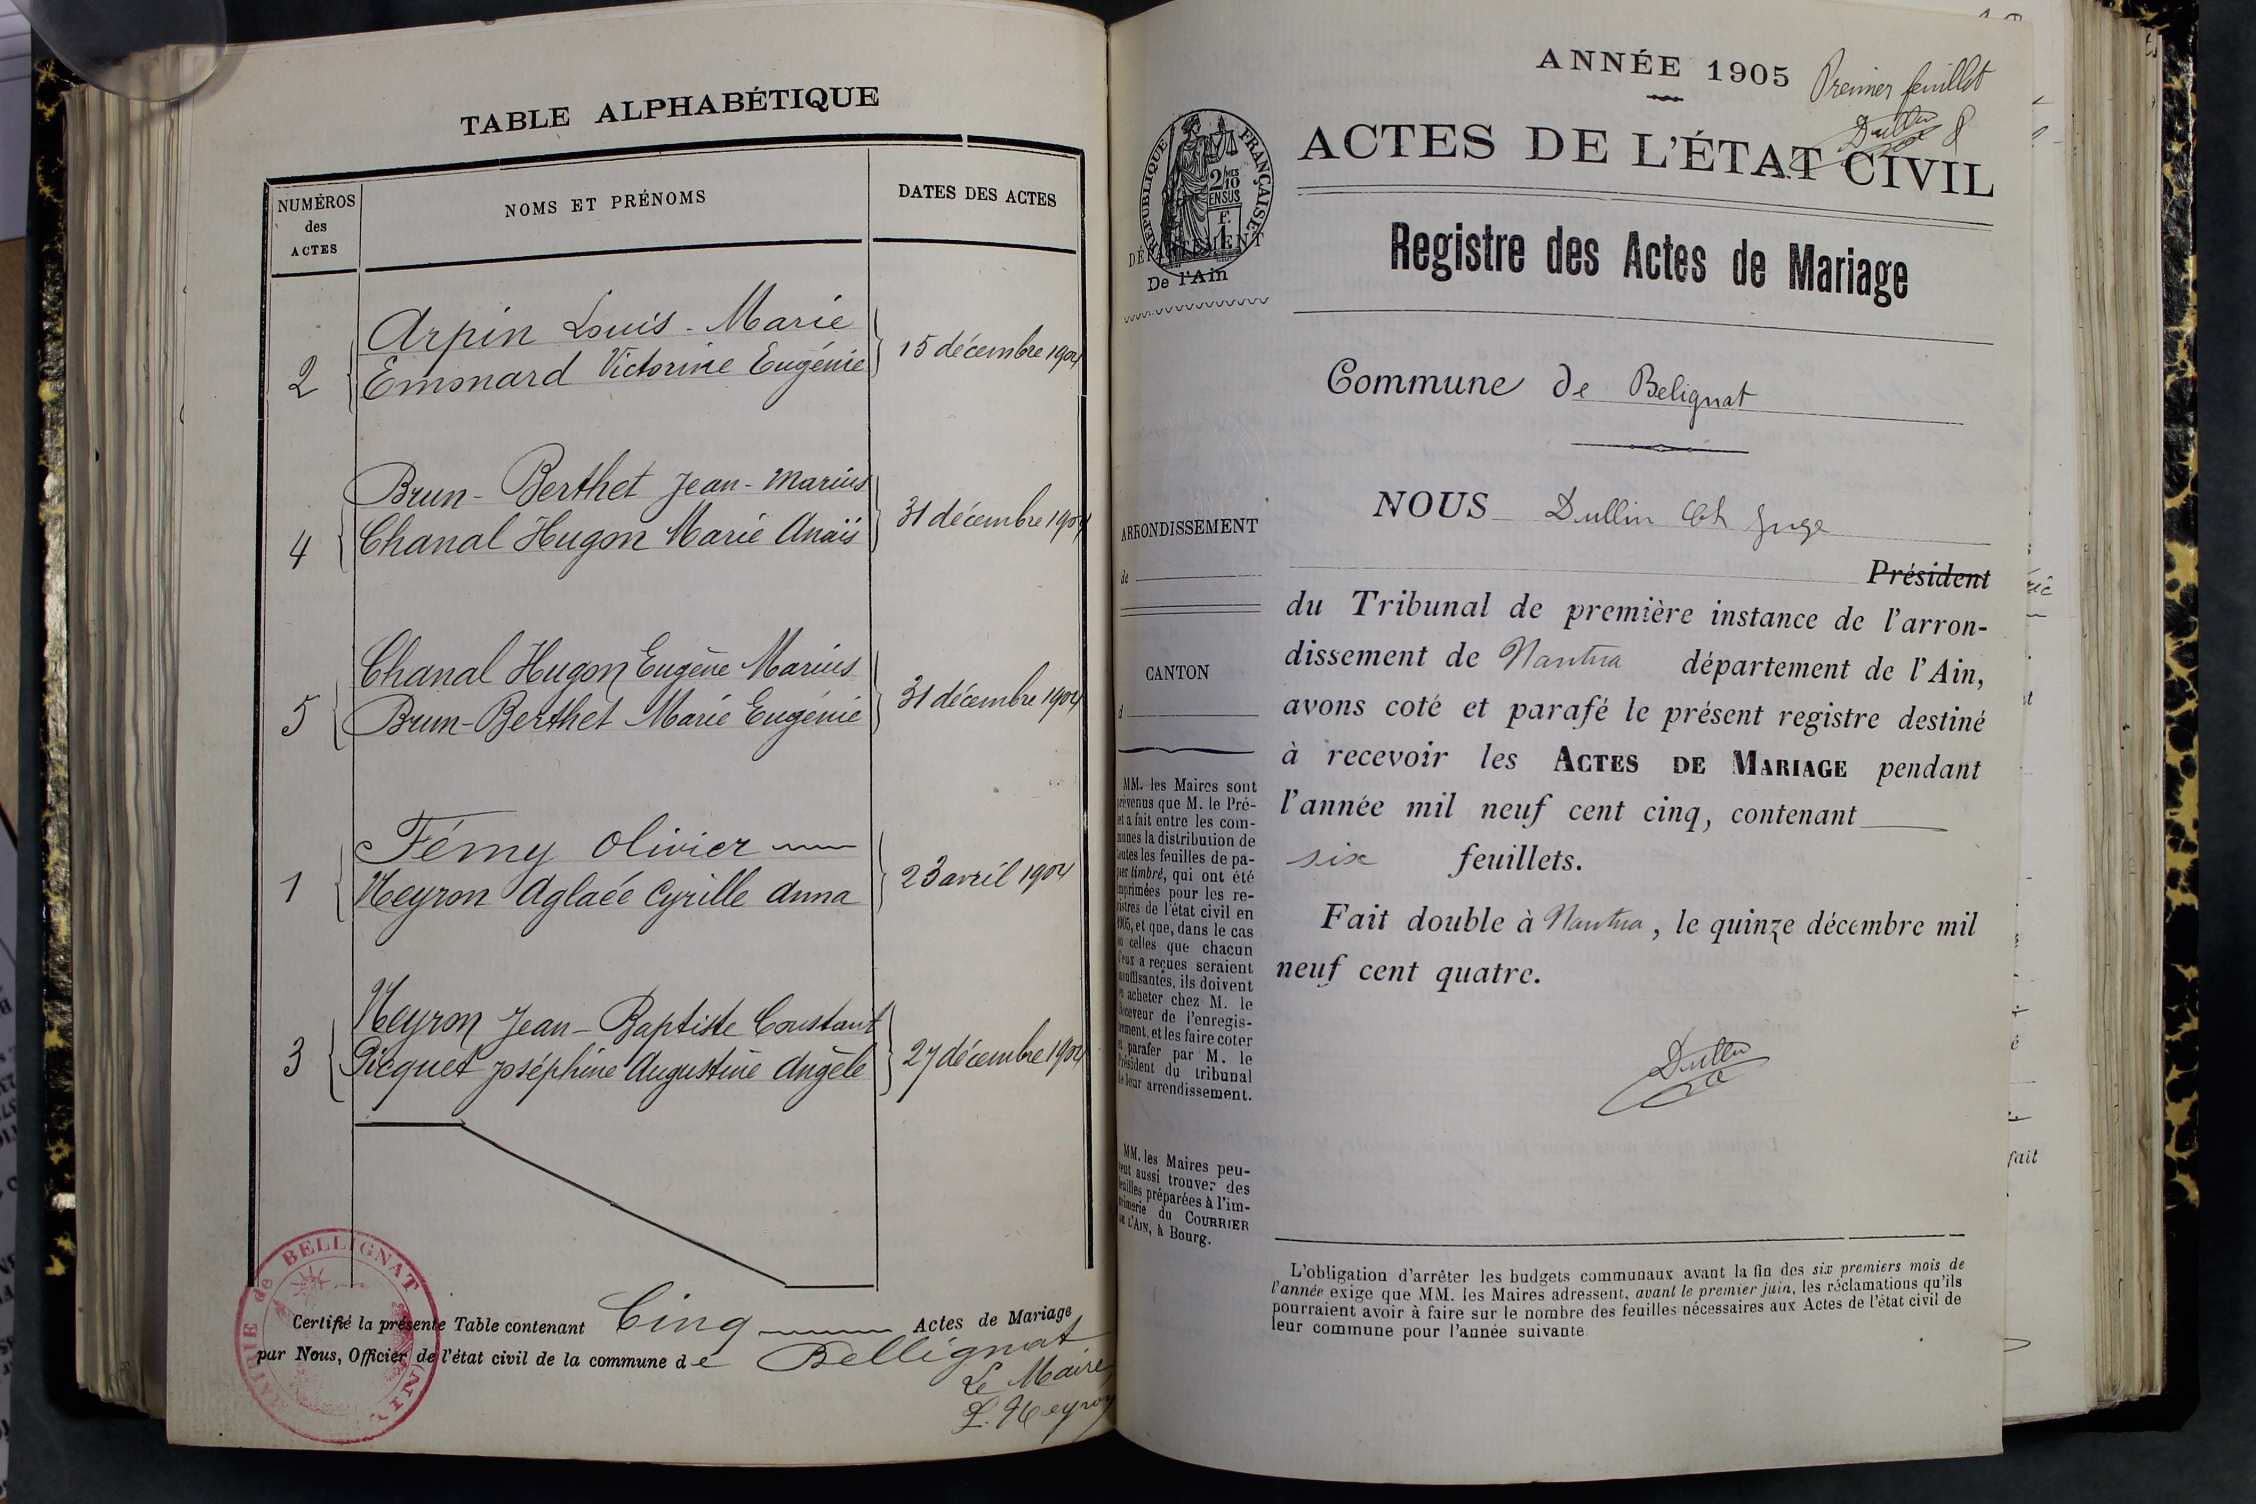 TABLE ALPHABÉTIQUE
NUMÉROS
des
ACTES
NOMS ET PRÉNOMS
DATES DES ACTES
Arpin Louis-Marie
2 Emonard Victorine Eugénie 15 décembre 1904
Brun-Berthet Jean-Marius
4 Chanal Hugon Marie Anaïs 31 décembre 1904
Chanal Hugon Eugène Marius
5 Brun-Berthet Marie Eugénie 31 décembre 1904
Fémy Olivier
1 Neyron Aglaée Cyrille Anna 23 avril 1904
Neyron Jean-Baptiste Constant
3 Picquet Joséphine Augustine Angèle 27 décembre 1904
MAIRIE de BELLIGNAT
AIN
Certifié la présente Table contenant Cinq Actes de Mariage
par Nous, Officier de l'état civil de la commune de Bellignat
Le Maire
L. Neyron
ANNÉE 1905
Premier feuillet
Dullin
ACTES DE L'ÉTAT CIVIL
RÉPUBLIQUE FRANÇAISE
2/10
EN SUS
DÉPARTEMENT
De l'Ain
Registre des Actes de Mariage
Commune de Belignat
ARRONDISSEMENT
de
CANTON
d
NOUS Dullin Ch Juge
Président
du Tribunal de première instance de l'arron-
dissement de Nantua département de l'Ain,
avons coté et parafé le présent registre destiné
à recevoir les ACTES DE MARIAGE pendant
l'année mil neuf cent cinq, contenant
six feuillets.
Fait double à Nantua, le quinze décembre mil
neuf cent quatre.
Dullin
MM. les Maires sont
prévenus que M. le Pré-
fet a fait entre les com-
munes la distribution de
toutes les feuilles de pa-
pier timbré, qui ont été
imprimées pour les re-
gistres de l'état civil en
1905, et que, dans le cas
où celles que chacun
d'eux a reçues seraient
insuffisantes, ils doivent
en acheter chez M. le
Receveur de l'enregis-
trement, et les faire coter
et parafer par M. le
Président du tribunal
de leur arrendissement.
MM. les Maires peu-
vent aussi trouver des
feuilles préparées à l'im-
primerie du COURRIER
DE L'AIN, à Bourg.
L'obligation d'arrêter les budgets communaux avant la fin des six premiers mois de
l'année exige que MM. les Maires adressent, avant le premier juin, les réclamations qu'ils
pourraient avoir à faire sur le nombre des feuilles nécessaires aux Actes de l'état civil de
leur commune pour l'année suivante.
fait